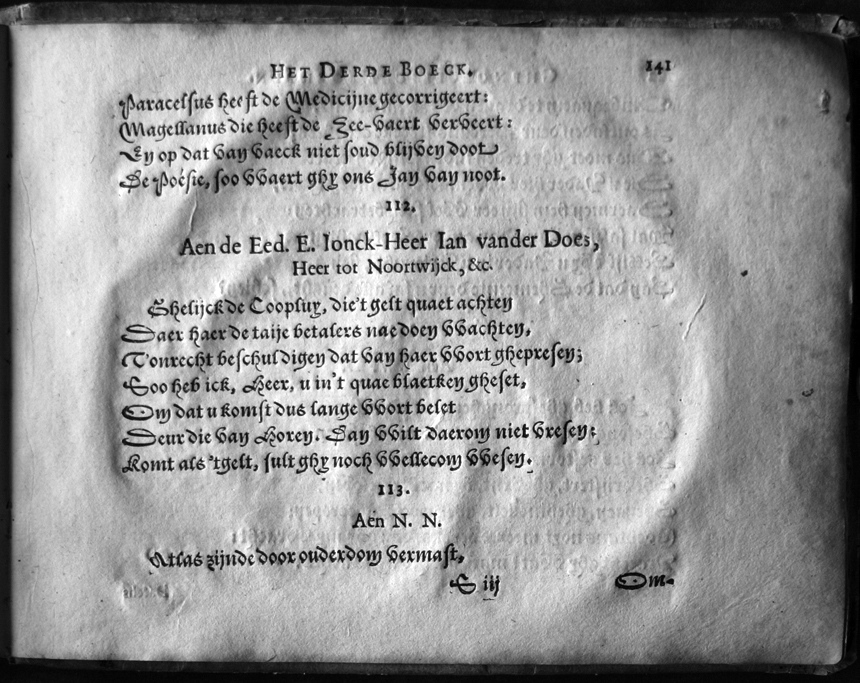 HET DERDE BOECK.
141
Paracelsus heeft de Medicijne gecorrigeert:
Magellanus die heeft de Zee-vaert verbeert:
En op dat van vaeck niet soud blijven doot
De Poësie, soo waert ghy ons Jan van noot.
112.
Aen de Eed. E. Ionck-Heer Ian vander Does,
Heer tot Noortwijck, &c.
Ghelijck de Coopluy, die't gelt quaet achten
Daer haer de taije betalers nae doen wachten,
T'onrecht beschuldigen dat van haer wort ghepresen;
Soo heb ick, Heer, u in't quae blaetken gheset,
Om dat u komst dus lange wort belet
Deur die van Horen. Dan wilt daerom niet vresen;
Komt als 'tgelt, sult ghy noch wellecom wesen.
113.
Aen N. N.
Atlas zijnde door ouderdom vermast,
S iij
Om-